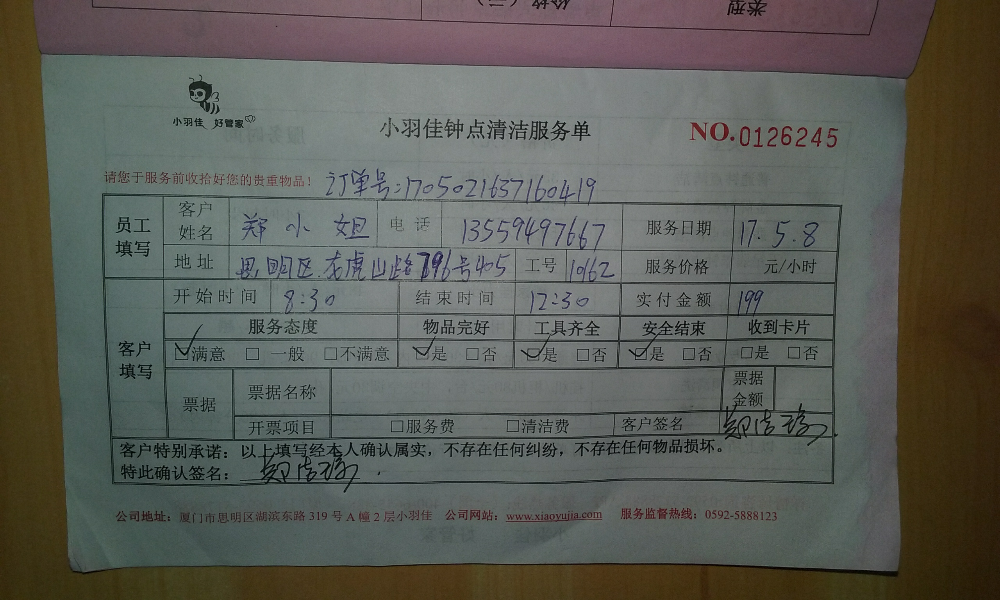 类型
价格(元)
小羽佳 好管家
小羽佳钟点清洁服务单
NO.0126245
请您于服务前收拾好您的贵重物品！ 订单号:1705021637160419
员工填写 客户姓名 郑小姐 电话 13559497667 服务日期 17.5.8
地址 思明区龙虎山路796号405 工号 10162 服务价格 元/小时
客户填写 开始时间 8:30 结束时间 12:30 实付金额 199
服务态度 物品完好 工具齐全 安全结束 收到卡片
☑满意 □一般 □不满意 ☑是 □否 ☑是 □否 ☑是 □否 □是 □否
票据 票据名称 票据金额
开票项目 □服务费 □清洁费 客户签名
客户特别承诺：以上填写经本人确认属实，不存在任何纠纷，不存在任何物品损坏。
特此确认签名：
公司地址：厦门市思明区湖滨东路 319 号 A 幢 2 层小羽佳 公司网站：www.xiaoyujia.com 服务监督热线：0592-5888123